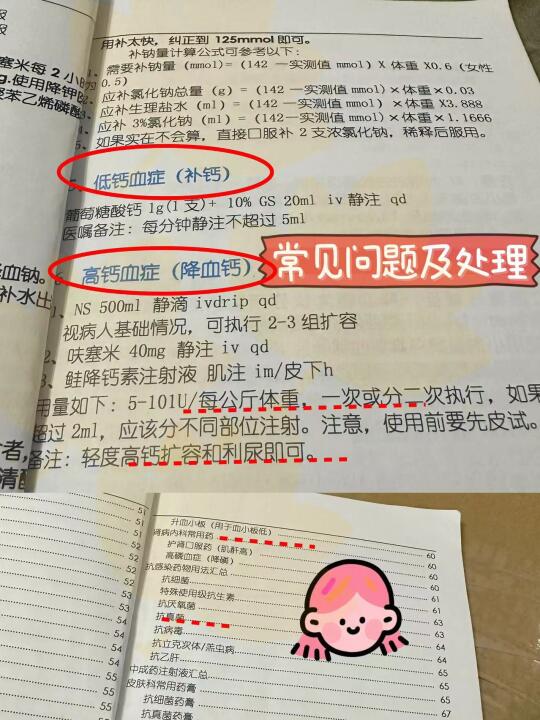 报
报
用补太快，纠正到 125mmol 即可。
补钠量计算公式可参考以下：
需要补钠量（mmol）=（142 一实测值 mmol）X 体重 X0.6（女性
0.5）
应补氯化钠总量（g）=（142 一实测值 mmol）×体重×0.03
应补生理盐水（ml）=（142 一实测值 mmol）×体重 X3.888
应补 3%氯化钠（ml）=（142一实测值 mmol）×体重×1.1666
5、如果实在不会算，直接口服补 2 支浓氯化钠，稀释后服用。
塞米每 2 小
g.使用降钾
聚苯乙烯磺酸
低钙血症（补钙）
葡萄糖酸钙 1g(1 支)+ 10% GS 20ml iv 静注 qd
医嘱备注：每分钟静注不超过 5ml
高钙血症（降血钙）
常见问题及处理
血钠。
补水出
1、NS 500ml 静滴 ivdrip qd
视病人基础情况，可执行 2-3 组扩容
2、呋塞米 40mg 静注 iv qd
3、鲑降钙素注射液 肌注 im/皮下h
用量如下：5-101U/每公斤体重，一次或分二次执行，如果
超过 2ml，应该分不同部位注射。注意，使用前要先皮试。
备注：轻度高钙扩容和利尿即可。
者，
清
51
51
51
52
52
53
53
54
54
54
55
升血小板（用于血小板低）
肾病内科常用药 60
护肾口服药（肌酐高） 60
高磷血症（降磷） 60
抗感染药物用法汇总 60
抗细菌 61
特殊使用级抗生素 61
抗厌氧菌 63
抗真菌 64
抗病毒 64
抗立克次体/羔虫病 64
抗乙肝 65
中成药注射液汇总 65
皮肤科常用药膏 65
抗细菌药膏 67
抗真菌药膏